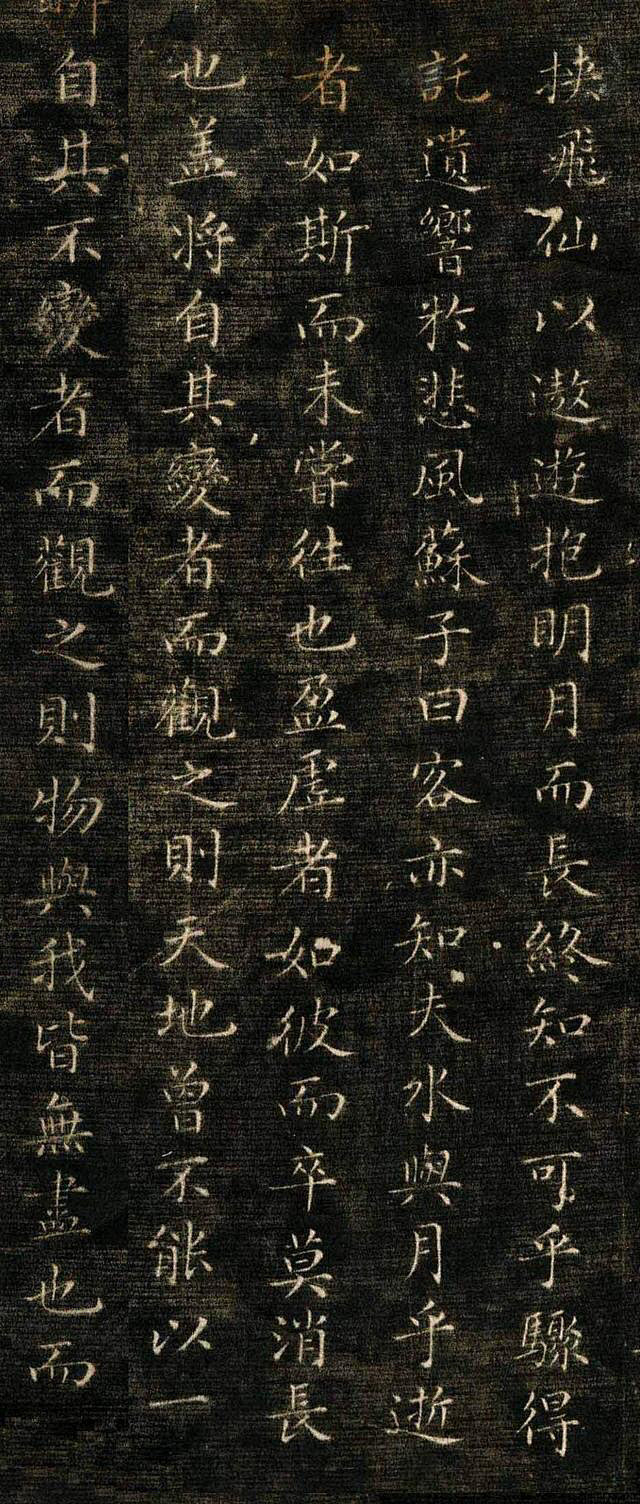 挾飛仙以遨遊抱明月而長終知不可乎驟得
託遺響於悲風蘇子曰客亦知夫水與月乎逝
者如斯而未嘗往也盈虛者如彼而卒莫消長
也盖將自其變者而觀之則天地曾不能以一
自其不變者而觀之則物與我皆無盡也而